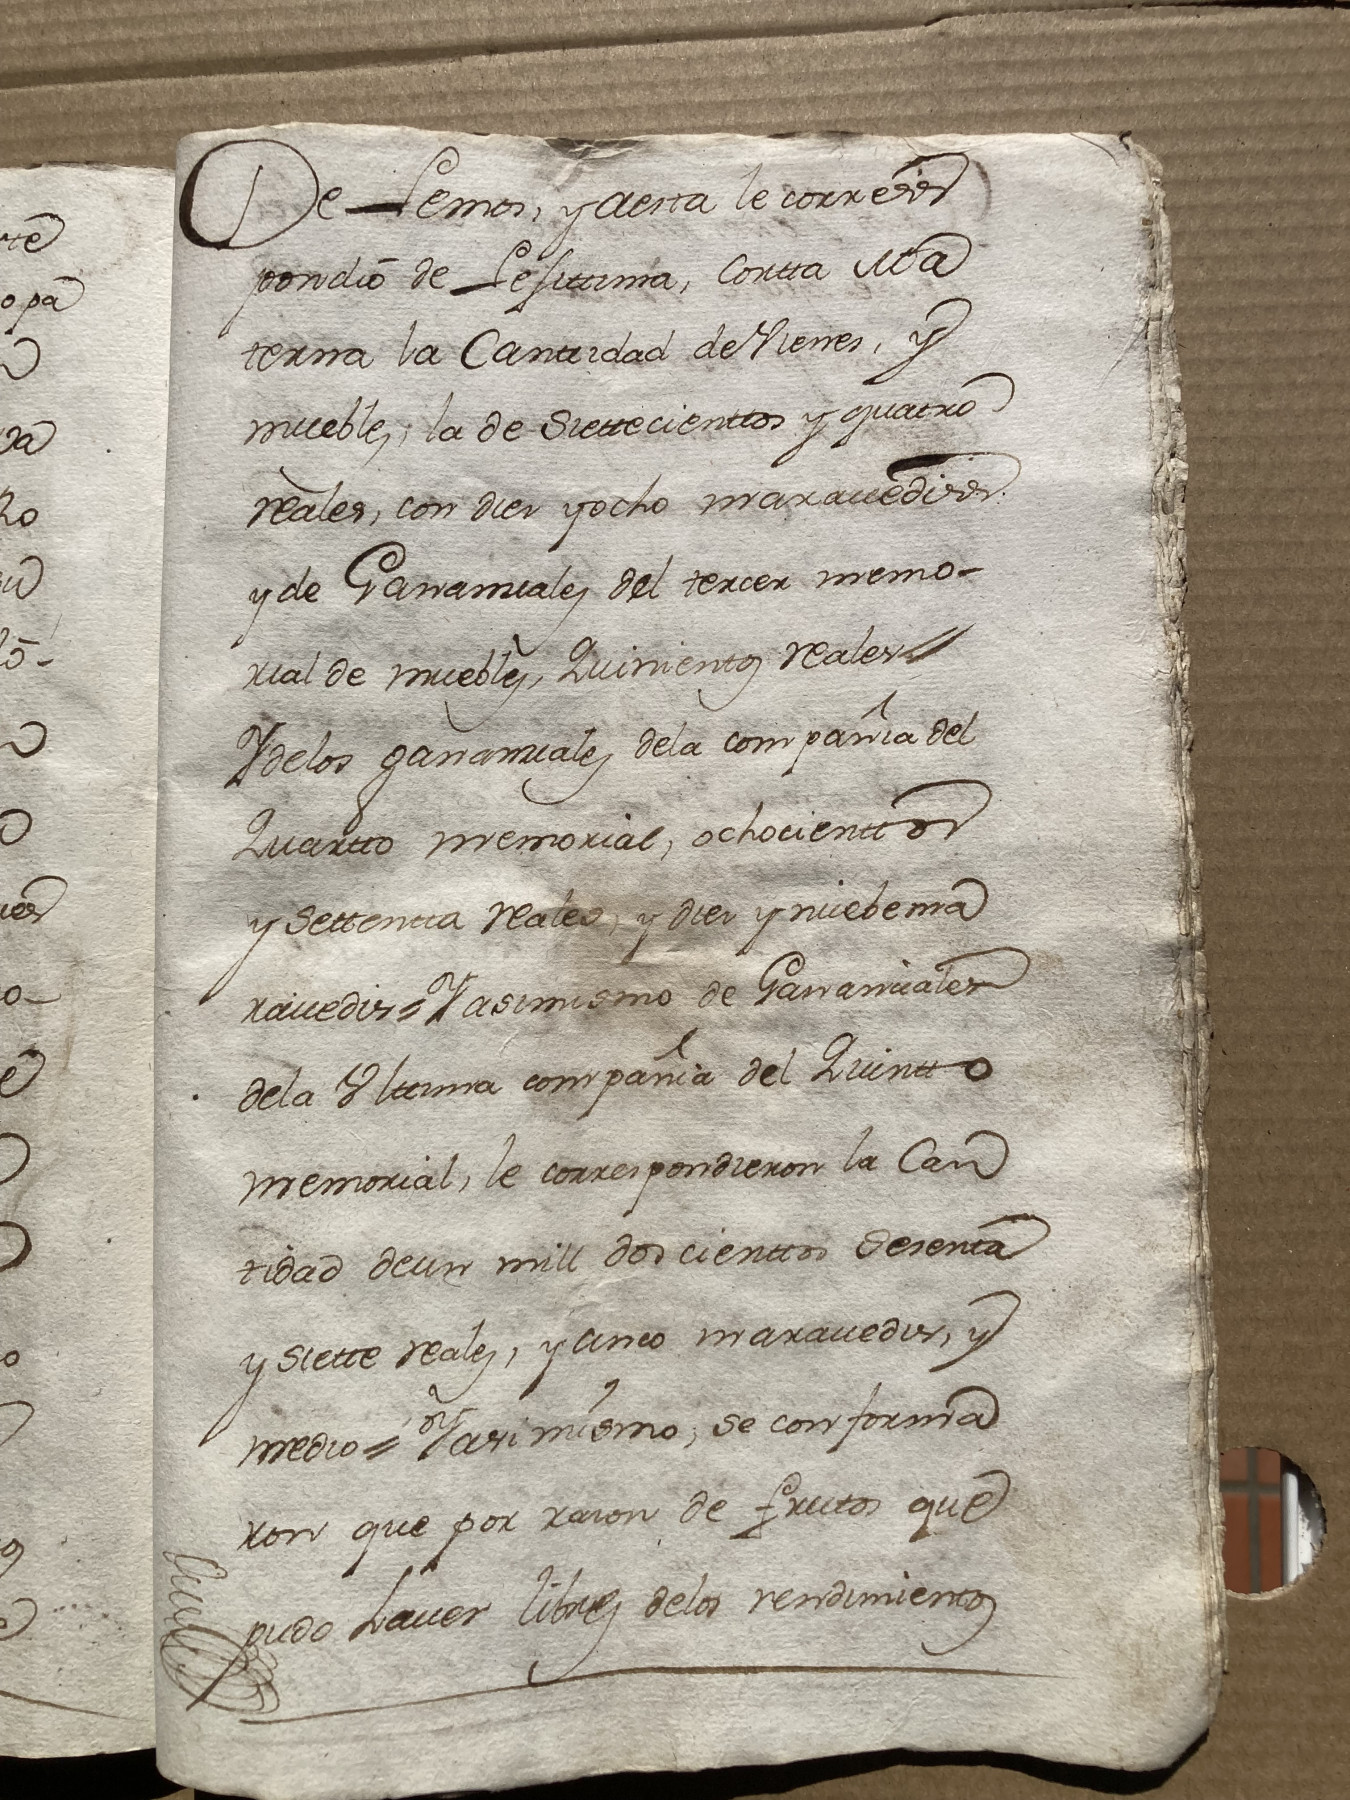 De Lemos, y aesta le corres
pondió de Lesittima, Cortta Ma
terna la Cantidad de Vienes, y
muebles, la de Siettecienttos y quatro
reales, con diez y ocho maravedis
y de Gananciales del tercer memo-
rial de muebles, Quinientos reales
Y delos gananciales dela compañia del
Quartto memorial, ochocienttos
y settentta reales, y diez y nuebe ma
ravedis Y asimismo de Gananciales
dela Ulttima compañia del Quintto
memorial, le correspondieron la Can
tidad de un mill doscienttos Sesenta
y Siette reales, y cinco maravedis, y
medio Y asi mismo, se conforma
ron que por razon de frutos que
pudo haver libres delos rendimientos